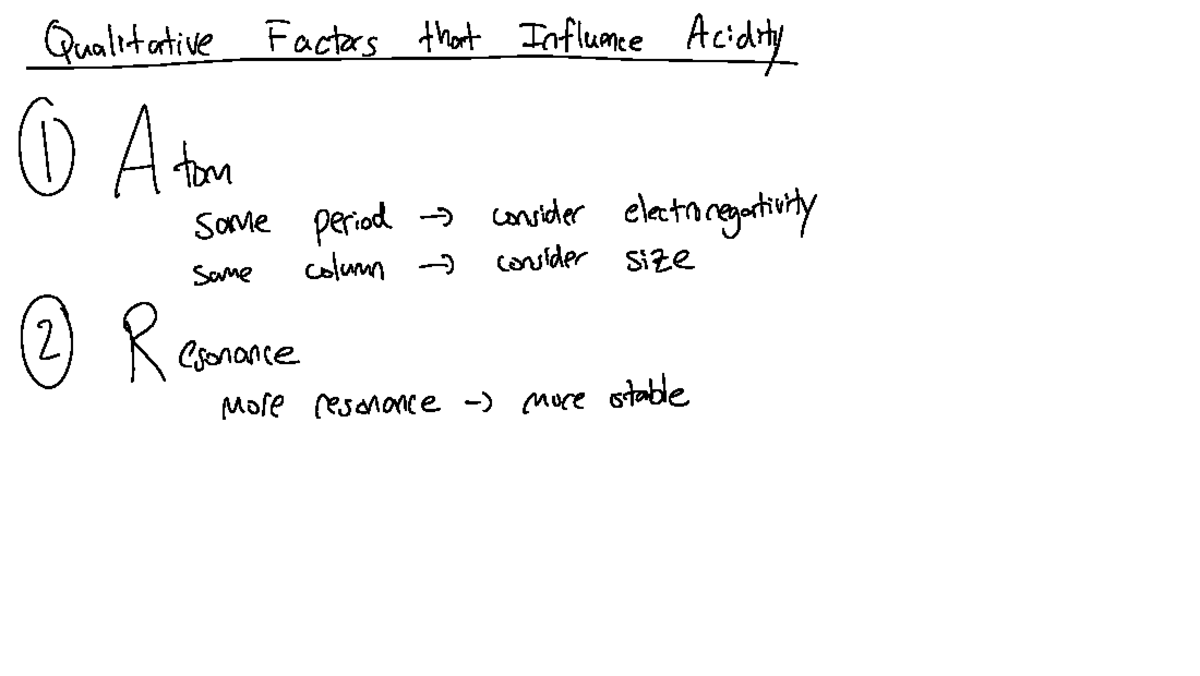 Qualitative Factors that Influence Acidity
① Atom
same period → consider electronegativity
same column → consider size
② Resonance
More resonance → more stable